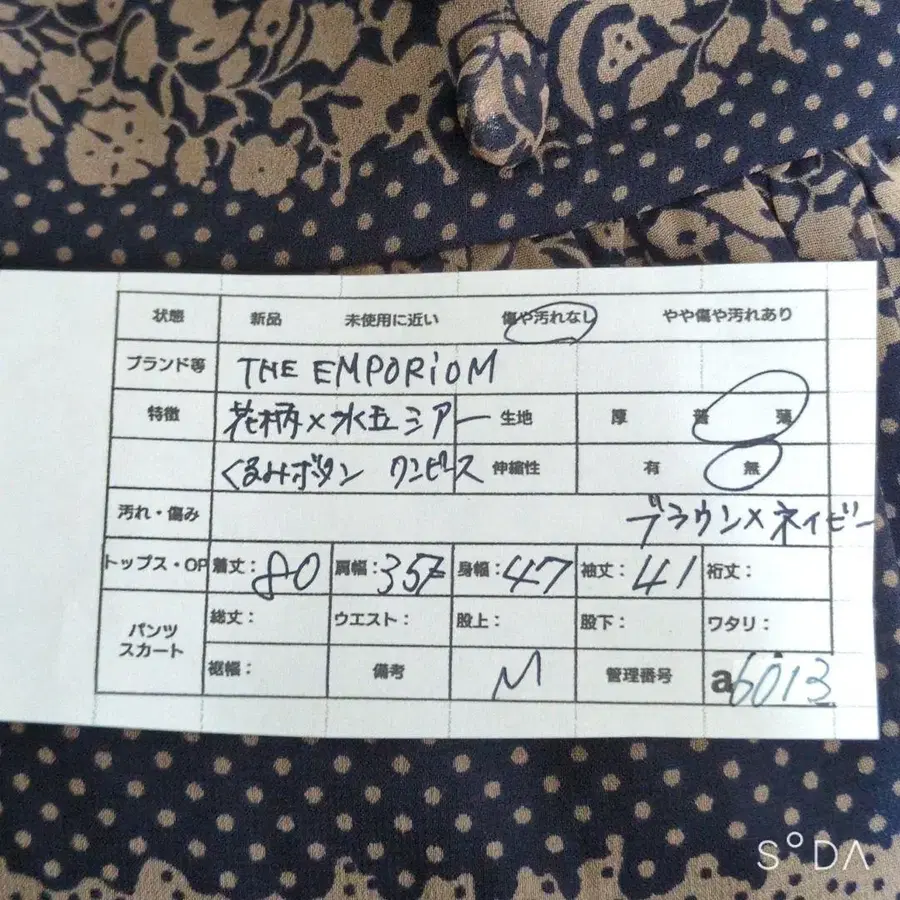 状態 新品 未使用に近い 傷や汚れなし やや傷や汚れあり
ブランド等 THE EMPORiOM
特徴 花柄×水玉シアー 生地 厚 普 薄
くるみボタン ワンピース 伸縮性 有 無
汚れ・傷み ブラウン×ネイビー
トップス・OP 着丈：80 肩幅：37 身幅：47 袖丈：41 裄丈：
パンツ スカート 総丈： ウエスト： 股上： 股下： ワタリ：
裾幅： 備考 M 管理番号 a6013
SODA